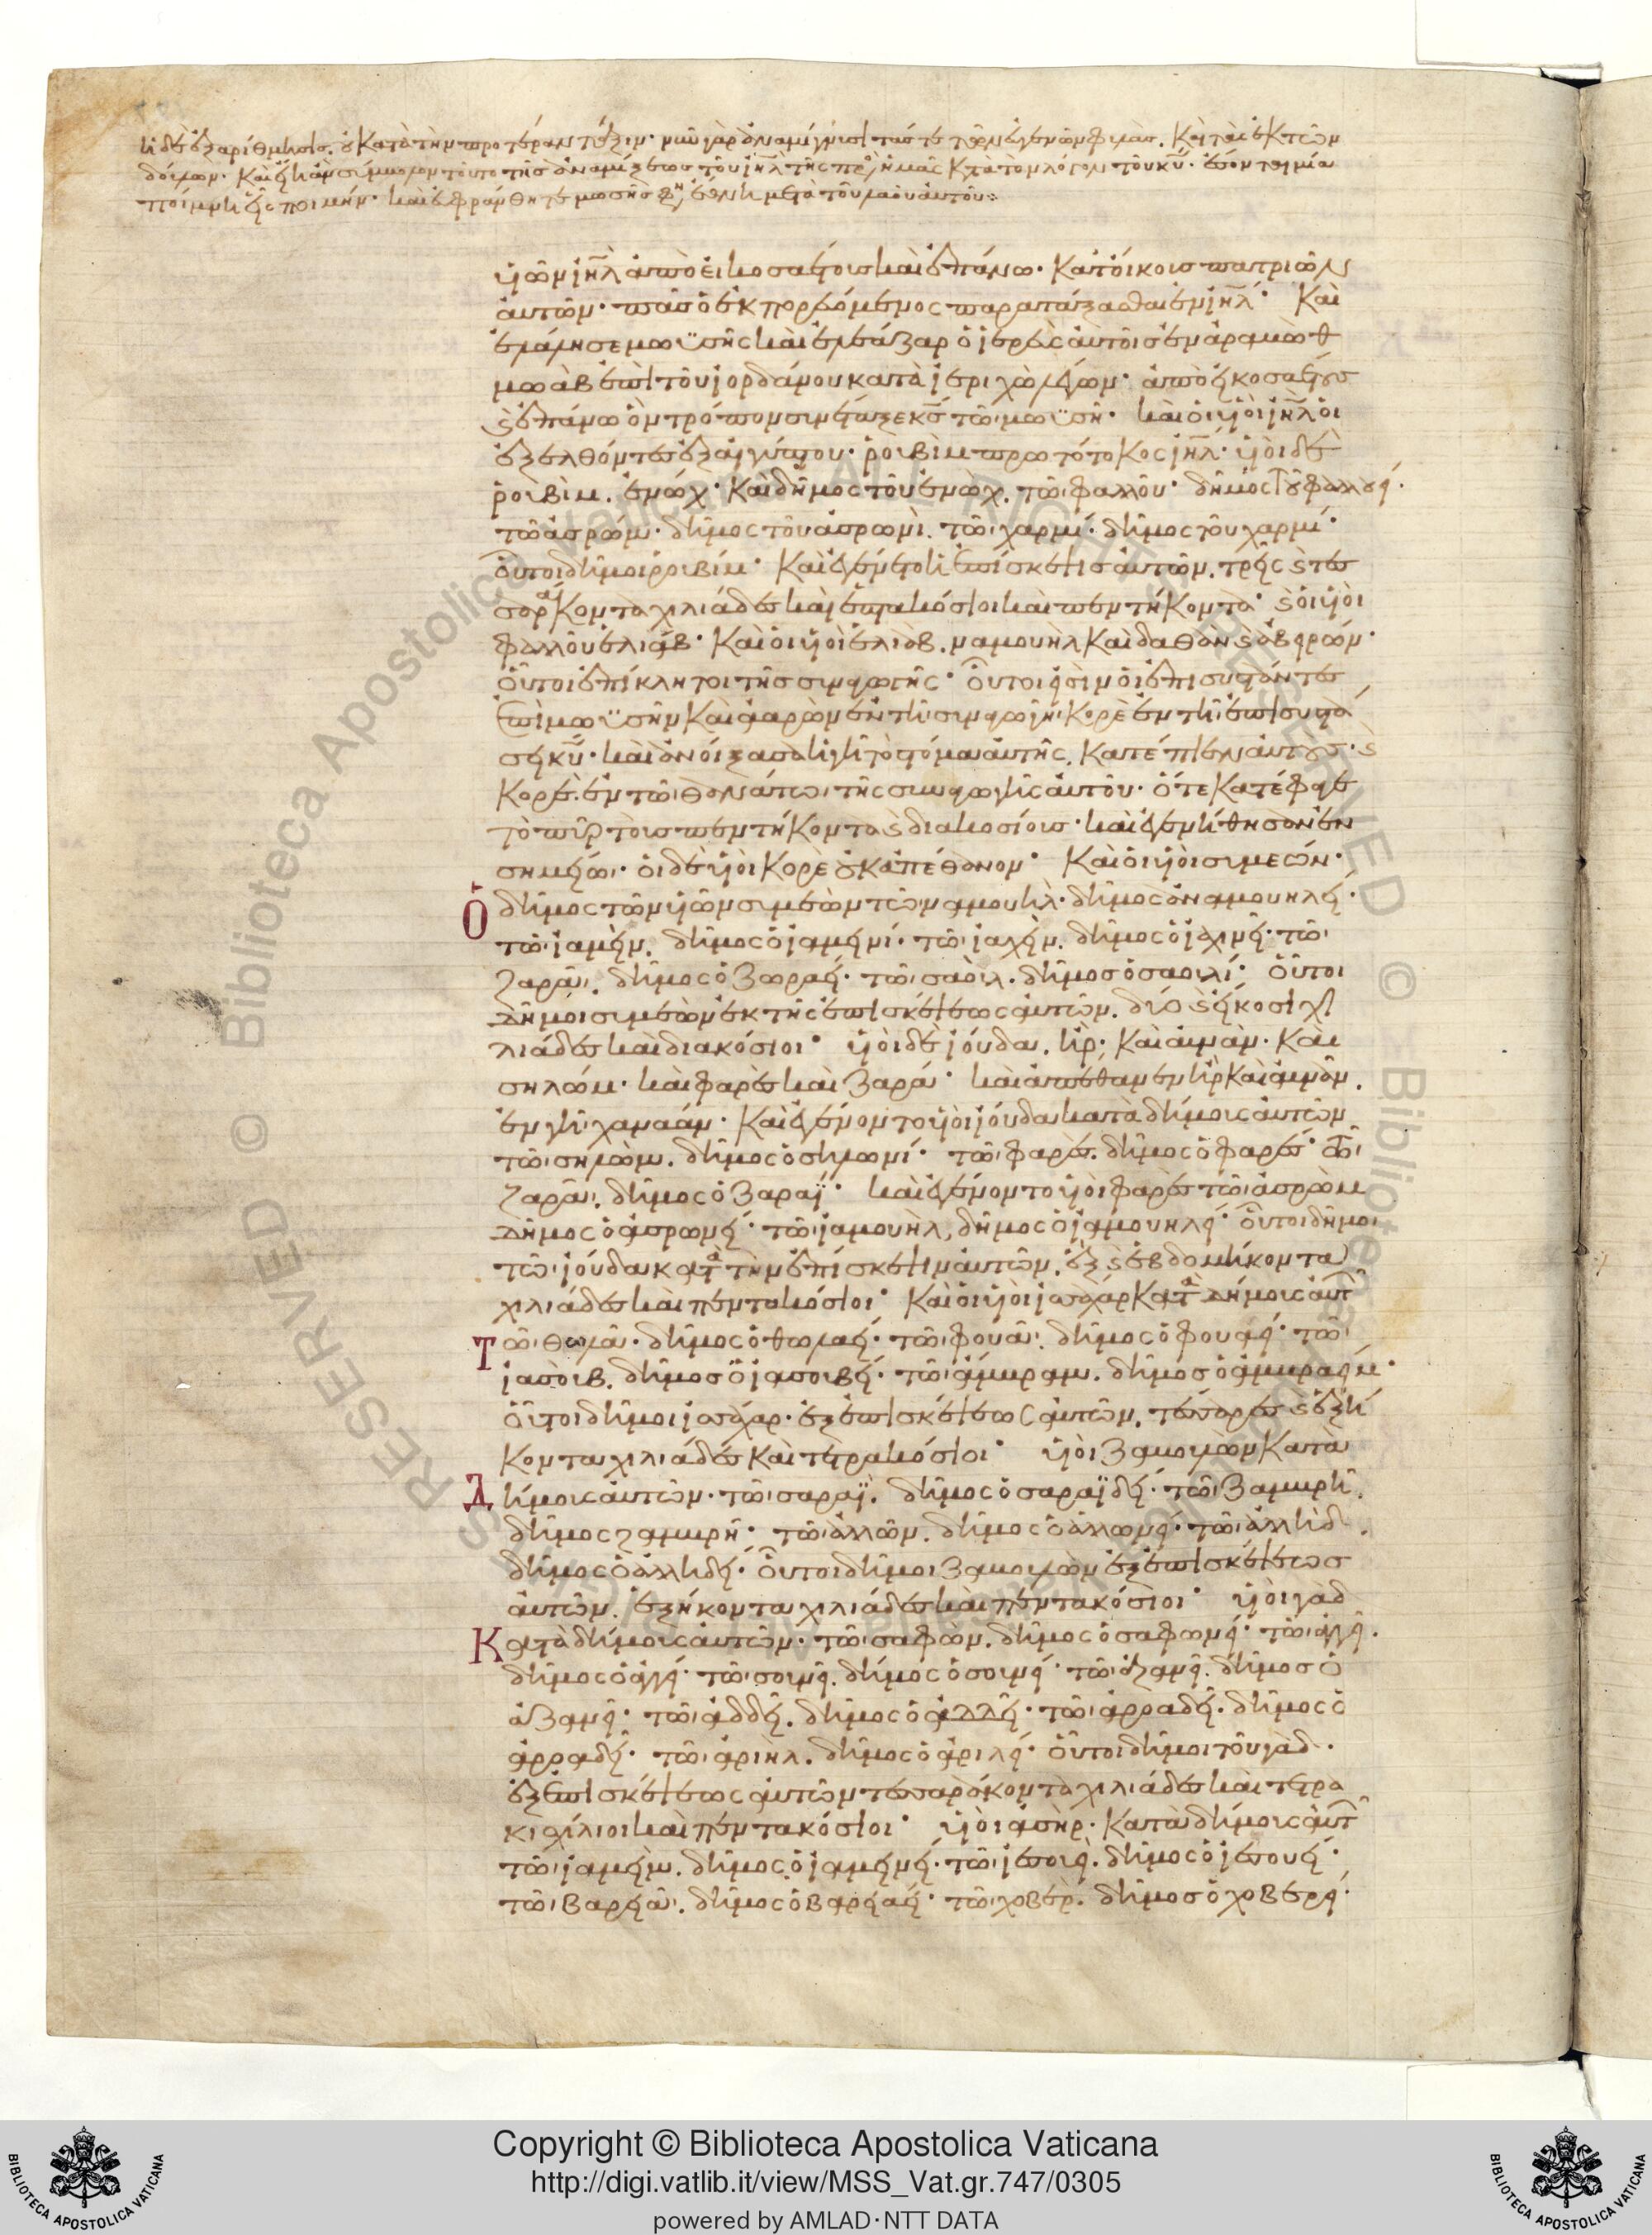 ἡ δὲ ἐξαρίθμησις. οὐ κατὰ τὴν προτέραν τάξιν· νῦν γὰρ ἀναμίγνυσι τάς τε τῶν εὐγενῶν φυλὰς. καὶ τὰς ἐκ τῶν
δούλων· καὶ ἦν σύμβολον τοῦτο τῆς ἀναμίξεως τοῦ ἰηλ τῆς πρὸς ἡμᾶς κατὰ τὸν λόγον τοῦ κυ· ἔσονται μία
ποίμνη εἷς ποιμήν· μετὰ τοῦ λαοῦ αὐτοῦ
υἱῶν ἰηλ ἀπὸ εἰκοσαετοῦς καὶ ἐπάνω· κατ' οἴκους πατριῶν
αὐτῶν· πᾶς ὁ ἐκπορευόμενος παρατάξασθαι ἐν ἰηλ· Καὶ
ἐλάλησε μωϋσῆς καὶ ἐλεάζαρ ὁ ἱερεὺς αὐτοῖς ἐν ἀραμὼθ
μωὰβ ἐπὶ τοῦ ἰορδάνου κατὰ ἱεριχὼ λέγων· ἀπὸ εἰκοσαετοῦς
καὶ ἐπάνω ὃν τρόπον συνέταξε κς τῶ μωϋσῆ· καὶ οἱ υἱοὶ ἰηλ οἱ
ἐξελθόντες ἐξ αἰγύπτου· ῥουβὶμ πρωτότοκος ἰηλ· υἱοὶ δὲ
ῥουβὶμ. ἐνώχ· καὶ δῆμος τοῦ ἐνώχ. τῶ φαλλοῦ· δῆμος τοῦ φαλλουεί·
τῶ ἀσρώμ· δῆμος τοῦ ἀσρωμὶ. τῶ χαρμί· δῆμος τοῦ χαρμί·
οὗτοι δῆμοι ῥουβίμ· καὶ ἐγένετο ἡ ἐπίσκεψις αὐτῶν. τρεῖς καὶ τεσ
σαράκοντα χιλιάδες καὶ ἑπτακόσιοι καὶ πεντήκοντα· καὶ οἱ υἱοὶ
φαλλοῦ ἐλιάβ· καὶ οἱ υἱοὶ ἐλιὰβ. ναμουὴλ καὶ δαθὰν καὶ ἀβειρών·
οὗτοι ἐπίκλητοι τῆς συναγωγῆς· οὗτοι εἰσὶν οἱ ἐπισυστάντες
ἐπὶ μωϋσῆν καὶ ἀαρὼν ἐν τῆ συναγωγῆ κορὲ ἐν τῆ ἐπισυστά
σει κυ· καὶ ἀνοίξασα ἡ γῆ τὸ στόμα αὐτῆς, κατέπιεν αὐτοὺς· καὶ
κορέ. ἐν τῶ θανάτω τῆς συναγωγῆς αὐτοῦ· ὅτε κατέφαγε
τὸ πῦρ τοὺς πεντήκοντα καὶ διακοσίους· καὶ ἐγενήθησαν ἐν
σημείω· οἱ δὲ υἱοὶ κορὲ οὐκ ἀπέθανον· Καὶ οἱ υἱοὶ συμεών·
Ὁ δῆμος τῶν υἱῶν συμεὼν τῶ ναμουὴλ· δῆμος ὁ ναμουηλεί·
τῶ ἰαμεὶν. δῆμος ὁ ἰαμεινί· τῶ ἰαχεὶν. δῆμος ὁ ἰαχινεί· τῶ
ζαρᾶ. δῆμος ὁ ζαραεί· τῶ σαοὺλ. δῆμος ὁ σαουλί· οὗτοι
δῆμοι συμεὼν ἐκ τῆς ἐπισκέψεως αὐτῶν. δύο καὶ εἴκοσι χι
λιάδες καὶ διακόσιοι· υἱοὶ δὲ ἰούδα. ἢρ· καὶ αὐνὰν· καὶ
σηλώμ· καὶ φαρὲς καὶ ζαρά· καὶ ἀπέθανεν ἢρ καὶ αὐνὰν.
ἐν γῆ χαναάν· καὶ ἐγένοντο υἱοὶ ἰούδα κατὰ δήμους αὐτῶν
τῶ σηλώμ. δῆμος ὁ σηλωμί· τῶ φαρὲς. δῆμος ὁ φαρές· τῶ
ζαρᾶ. δῆμος ὁ ζαραΐ· καὶ ἐγένοντο υἱοὶ φαρὲς τῶ ἀσρὼμ
δῆμος ὁ ἀσρωμεί· τῶ ἰαμουὴλ, δῆμος ὁ ἰαμουηλεί· οὗτοι δῆμοι
τῶ ἰούδα κατὰ τὴν ἐπίσκεψιν αὐτῶν. ἓξ καὶ ἑβδομήκοντα
χιλιάδες καὶ πεντακόσιοι· Καὶ οἱ υἱοὶ ἰσάχαρ κατὰ δήμους αὐτῶν
Τῶ θωλᾶ· δῆμος ὁ θωλαεί· τῶ φουᾶ. δῆμος ὁ φουαεί· τῶ
ἰασοὺβ. δῆμος ὁ ἰασουβεί· τῶ ἄμβραμ. δῆμος ὁ ἀμβραμεί·
οὗτοι δῆμοι ἰσάχαρ· ἐξ ἐπισκέψεως αὐτῶν. τέσσαρες καὶ ἑξή
κοντα χιλιάδες καὶ τετρακόσιοι· υἱοὶ ζαβουλὼν κατὰ
Δήμους αὐτῶν· τῶ σαραΐ. δῆμος ὁ σαραϊδεί· τῶ ζαμβρῆ.
δῆμος ζαμβρῆ· τῶ ἀλλῶν. δῆμος ὁ ἀλλωνεί· τῶ ἀλλὴδ.
δῆμος ὁ ἀλληδεί· οὗτοι δῆμοι ζαβουλὼν ἐξ ἐπισκέψεως
αὐτῶν. ἑξήκοντα χιλιάδες καὶ πεντακόσιοι· υἱοὶ γὰδ
Κατὰ δήμους αὐτῶν· τῶ σαφὼν. δῆμος ὁ σαφωνεί· τῶ ἀγεῖ.
δῆμος ὁ ἀγεί· τῶ σουνεῖ. δῆμος ὁ σουνεί· τῶ ἀζανεῖ. δῆμος ὁ
ἀζανεί· τῶ ἀδδεῖ. δῆμος ὁ ἀδδεί· τῶ ἀρραδεῖ. δῆμος ὁ
ἀρραδεί· τῶ ἀριὴλ. δῆμος ὁ ἀριλεί· οὗτοι δῆμοι τοῦ γάδ.
ἐξ ἐπισκέψεως αὐτῶν τεσσαράκοντα χιλιάδες καὶ τετρα
κισχίλιοι καὶ πεντακόσιοι· υἱοὶ ἀσὴρ· κατὰ δήμους αὐτῶν
τῶ ἰαμεὶν. δῆμος ὁ ἰαμεινεί· τῶ ἰεσουεὶ. δῆμος ὁ ἰεσουεί·
τῶ βαρειᾶ. δῆμος ὁ βαρειαεί· τῶ χοβὲρ. δῆμος ὁ χοβερεί·
© Biblioteca Apostolica Vaticana ALL RIGHTS RESERVED
Copyright © Biblioteca Apostolica Vaticana
http://digi.vatlib.it/view/MSS_Vat.gr.747/0305
powered by AMLAD·NTT DATA
BIBLIOTECA APOSTOLICA VATICANA
BIBLIOTECA APOSTOLICA VATICANA